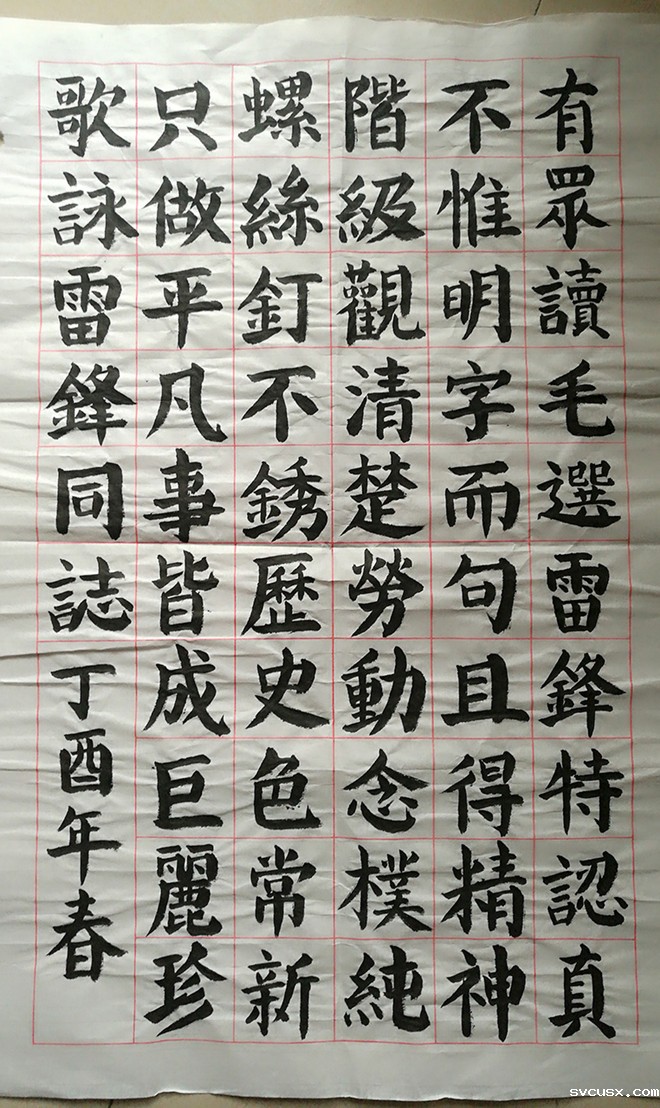 有眾讀毛選雷鋒特認真
不惟明字而句且得精神
階級觀清楚勞動念樸純
螺絲釘不銹歷史色常新
只做平凡事皆成巨麗珍
歌詠雷鋒同誌丁酉年春
svcusx.com